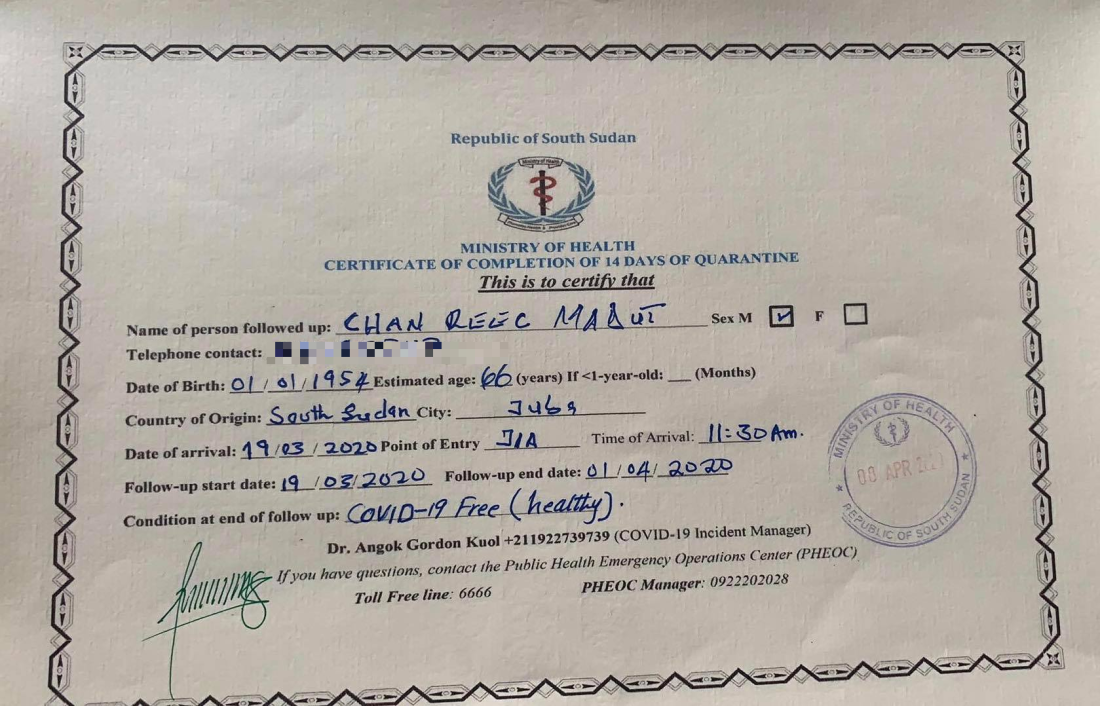 Republic of South Sudan
Ministry of Health
MINISTRY OF HEALTH
CERTIFICATE OF COMPLETION OF 14 DAYS OF QUARANTINE
This is to certify that
Name of person followed up: CHAN REEC MADUT Sex M ✓ F
Telephone contact:
Date of Birth: 01/01/1954 Estimated age: 66 (years) If <1-year-old: __ (Months)
Country of Origin: South Sudan City: Juba
Date of arrival: 19/03/2020 Point of Entry JIA Time of Arrival: 11:30 Am.
Follow-up start date: 19/03/2020 Follow-up end date: 01/04/2020
Condition at end of follow up: COVID-19 Free (healthy).
Dr. Angok Gordon Kuol +211922739739 (COVID-19 Incident Manager)
If you have questions, contact the Public Health Emergency Operations Center (PHEOC)
Toll Free line: 6666 PHEOC Manager: 0922202028
MINISTRY OF HEALTH
APR
REPUBLIC OF SOUTH SUDAN